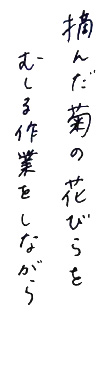 摘んだ菊の花びらを
むしる作業をしながら